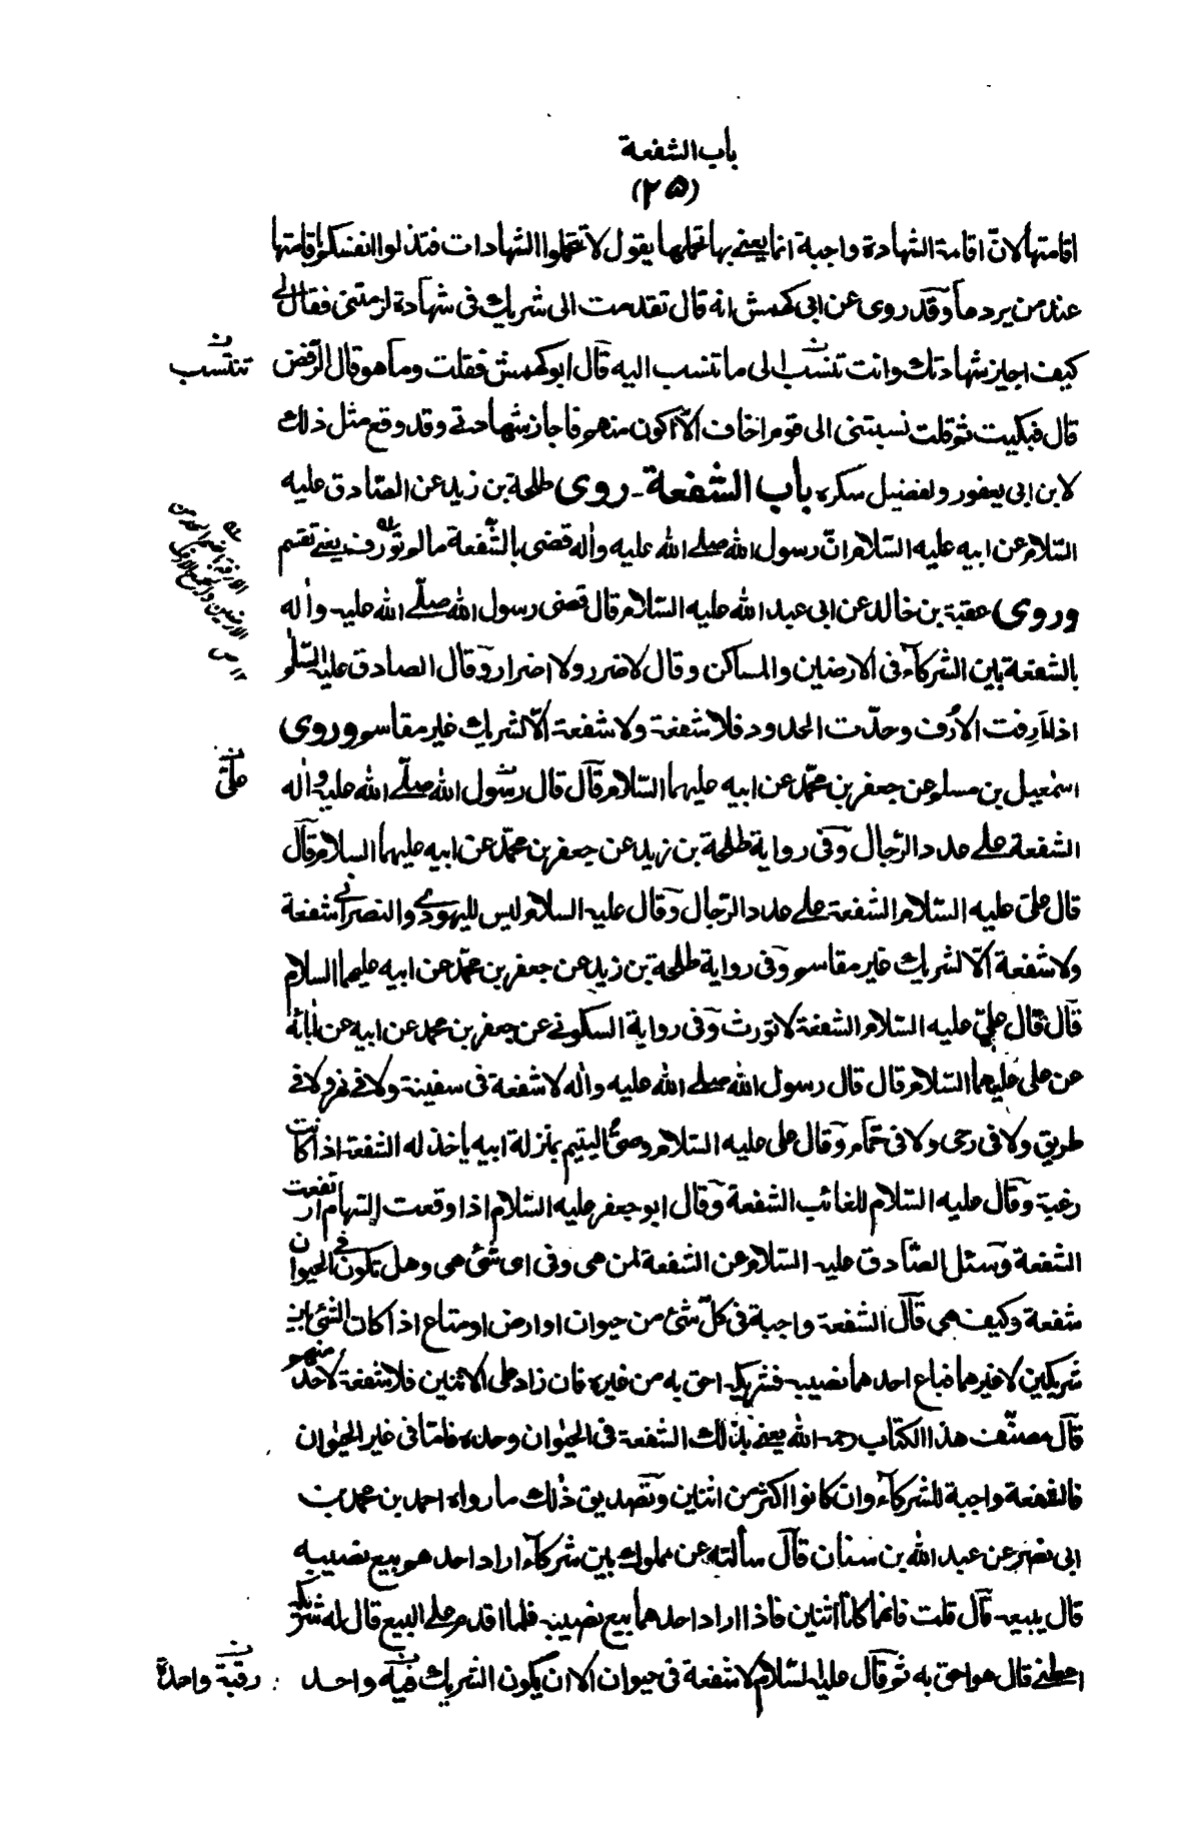 باب الشفعة
(٢٥)
اقامتها لانّ اقامة الشهادة واجبة انما يعنى بها تحملها يقول لا تتحملوا الشهادات فتذلوا انفسكم باقامتها
عند من يردها وقد روى عن ابى كهمش انه قال تقدمت الى شريك فى شهادة لزمتنى فقال لى
كيف اجيز شهادتك وانت تنسب الى ما تنسب اليه قال ابو كهمش فقلت وما هو قال الرّفض
تنتسب
قال فبكيت ثم قلت نسبتنى الى قوم اخاف الّا اكون منهم فاجاز شهادتى وقد وقع مثل ذلك
لابن ابى يعفور ولفضيل سكره باب الشفعة ـ روى طلحة بن زيد عن الصّادق عليه
السّلام عن ابيه عليه السّلام انّ رسول الله صلى الله عليه واله قضى بالشّفعة ما لم تؤرّف يعنى تقسم
وروى عقبة بن خالد عن ابى عبد الله عليه السّلام قال قضى رسول الله صلّى الله عليه واله
بالشفعة بين الشركآء فى الارضين والمساكن وقال لا ضرر ولا اضرار وقال الصادق عليه السّلم
اذا اُرفت الاُرف وحدّت الحدود فلا شفعة ولا شفعة الّا لشريك غير مقاسم وروى
اسمٰعيل بن مسلم عن جعفر بن محمّد عن ابيه عليهما السّلام قال قال رسول الله صلّى الله عليه واله
علىّ
الشفعة على عدد الرّجال وفى رواية طلحة بن زيد عن جعفر بن محمّد عن ابيه عليهما السلام قال
قال علىّ عليه السّلام الشفعة على عدد الرّجال وقال عليه السلام ليس لليهودى والنصرانى شفعة
ولا شفعة الّا لشريك غير مقاسم وفى رواية طلحة بن زيد عن جعفر بن محمّد عن ابيه عليهما السلام
قال قال علىّ عليه السّلام الشفعة لا تورث وفى رواية السكونى عن جعفر بن محمد عن ابيه عن اٰبائه
عن على عليهما السّلام قال قال رسول الله صلى الله عليه واله لا شفعة فى سفينة ولا فى نهر ولا فى
طريق ولا فى رحى ولا فى حمّام وقال على عليه السّلام وصىّ اليتيم بمنزلة ابيه ياخذ له الشفعة اذا كانت
رغبة وقال عليه السّلام للغائب الشفعة وقال ابو جعفر عليه السّلام اذا وقعت السّهام ارتفعت
الشفعة وسئل الصّادق عليه السّلام عن الشفعة لمن هى وفى اى شئ هى وهل تكون فى الحيوان
شفعة وكيف هى قال الشفعة واجبة فى كلّ شئ من حيوان او ارض او متاع اذا كان الشئ بين
شريكين لا غيرهما فباع احدهما نصيبه فشريكه احق به من غيره فان زاد على الاثنين فلا شفعة لاحد منهم
قال مصنّف هذا الكتاب رحمه الله يعنى بذلك الشفعة فى الحيوان وحده فامّا فى غير الحيوان
فالشفعة واجبة للشركآء وان كانوا اكثر من اثنين وتصديق ذلك ما رواه احمد بن محمد بن
ابى نصر عن عبد الله بن سنان قال سألته عن مملوك بين شركآء اراد احدهم بيع نصيبه
قال يبيعه قال قلت فانهما كانا اثنين فاذا اراد احدهما بيع نصيبه فلما اقدم على البيع قال له شريكه
اعطنى قال هو احق به ثم قال عليه السّلام لا شفعة فى حيوان الا ان يكون الشريك فيه واحد
رقبة واحدة